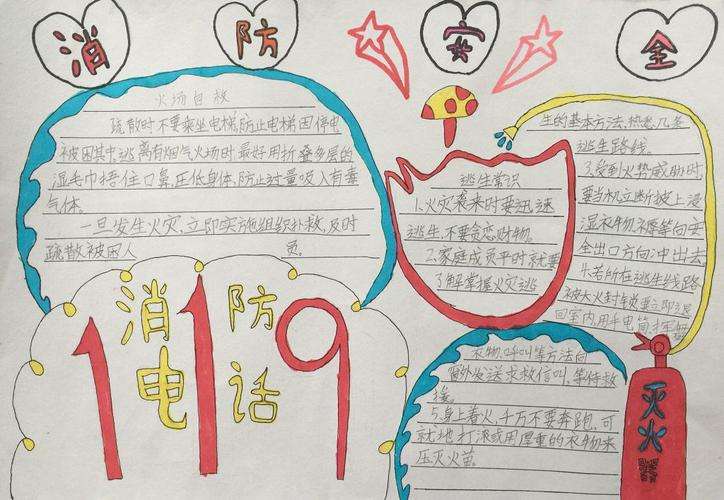 消 防 安 全
火场自救
疏散时不要乘坐电梯,防止电梯因停电
被困其中,逃离有烟气火场时,最好用折叠多层的
湿毛巾捂住口鼻,压低身体,防止过量吸入有毒
气体.
一旦发生火灾,立即实施组织扑救,及时
疏散被困人 员.
逃生常识
1.火灾袭来时要迅速
逃生,不要贪恋财物.
2.家庭成员平时就要
了解掌握火灾逃
生的基本方法,熟悉几条
逃生路线.
3.受到火势威胁时
要当机立断披上浸
湿衣物、被褥等向安
全出口方向冲出去
4.若所在逃生线路
被大火封锁要立即退
回室内,用手电筒
衣物,呼叫等方法向
窗外发送求救信叫,等待救
援.
5.身上着火,千万不要奔跑,可
就地打滚或用厚重的衣物来
压灭火苗.
消防
119
电话
灭火